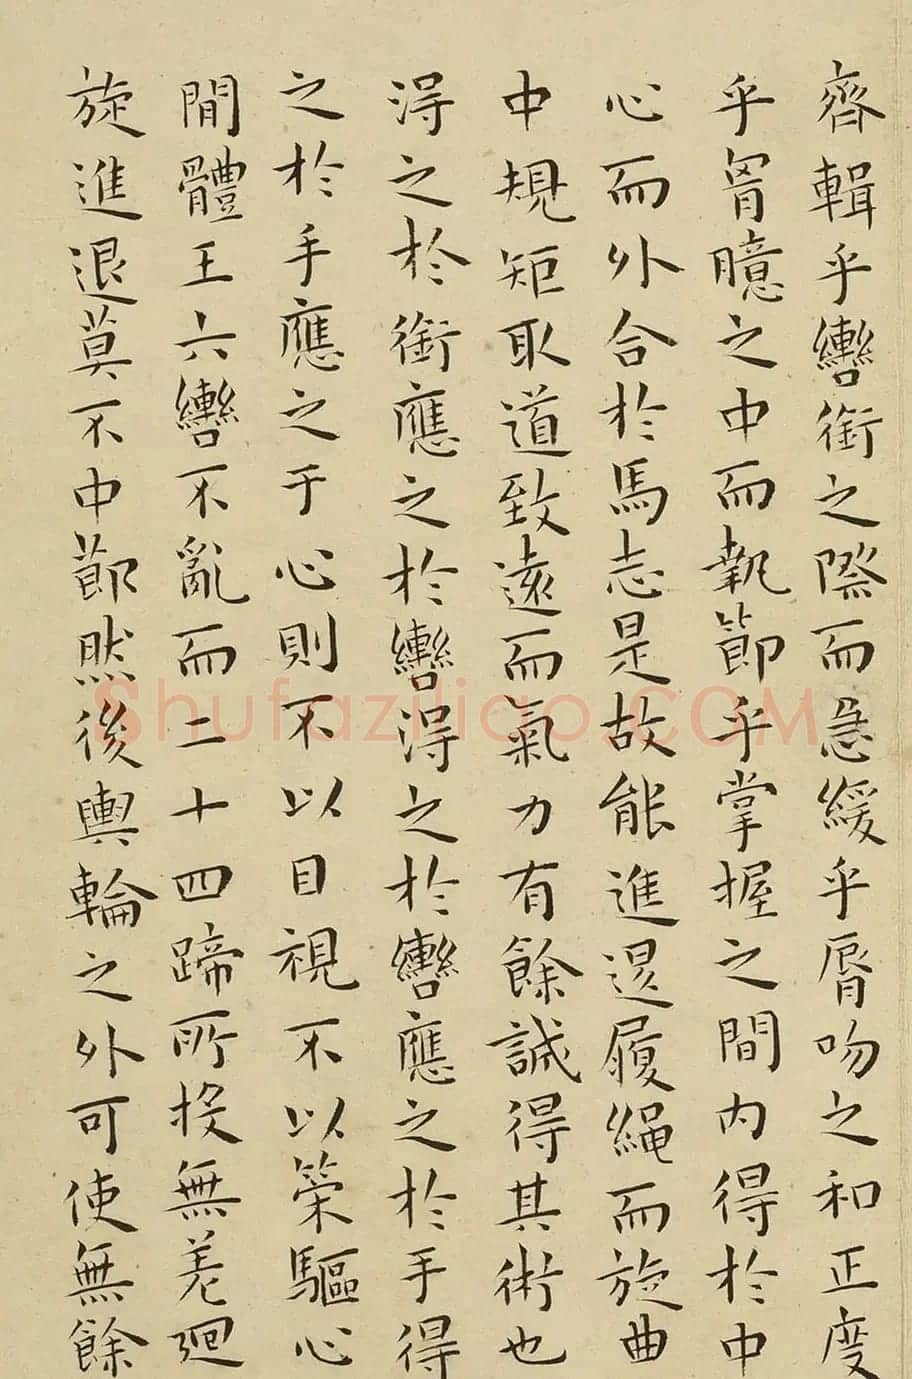 齊輯乎轡銜之際而急緩乎脣吻之和正度
乎胷臆之中而執節乎掌握之間內得於中
心而外合於馬志是故能進退履繩而旋曲
中規矩取道致遠而氣力有餘誠得其術也
淂之於銜應之於轡淂之於轡應之於手得
之於手應之于心則不以目視不以策驅心
閒體王六轡不亂而二十四蹄所投無差迴
旋進退莫不中節然後輿輪之外可使無餘
Shufaziliao.COM